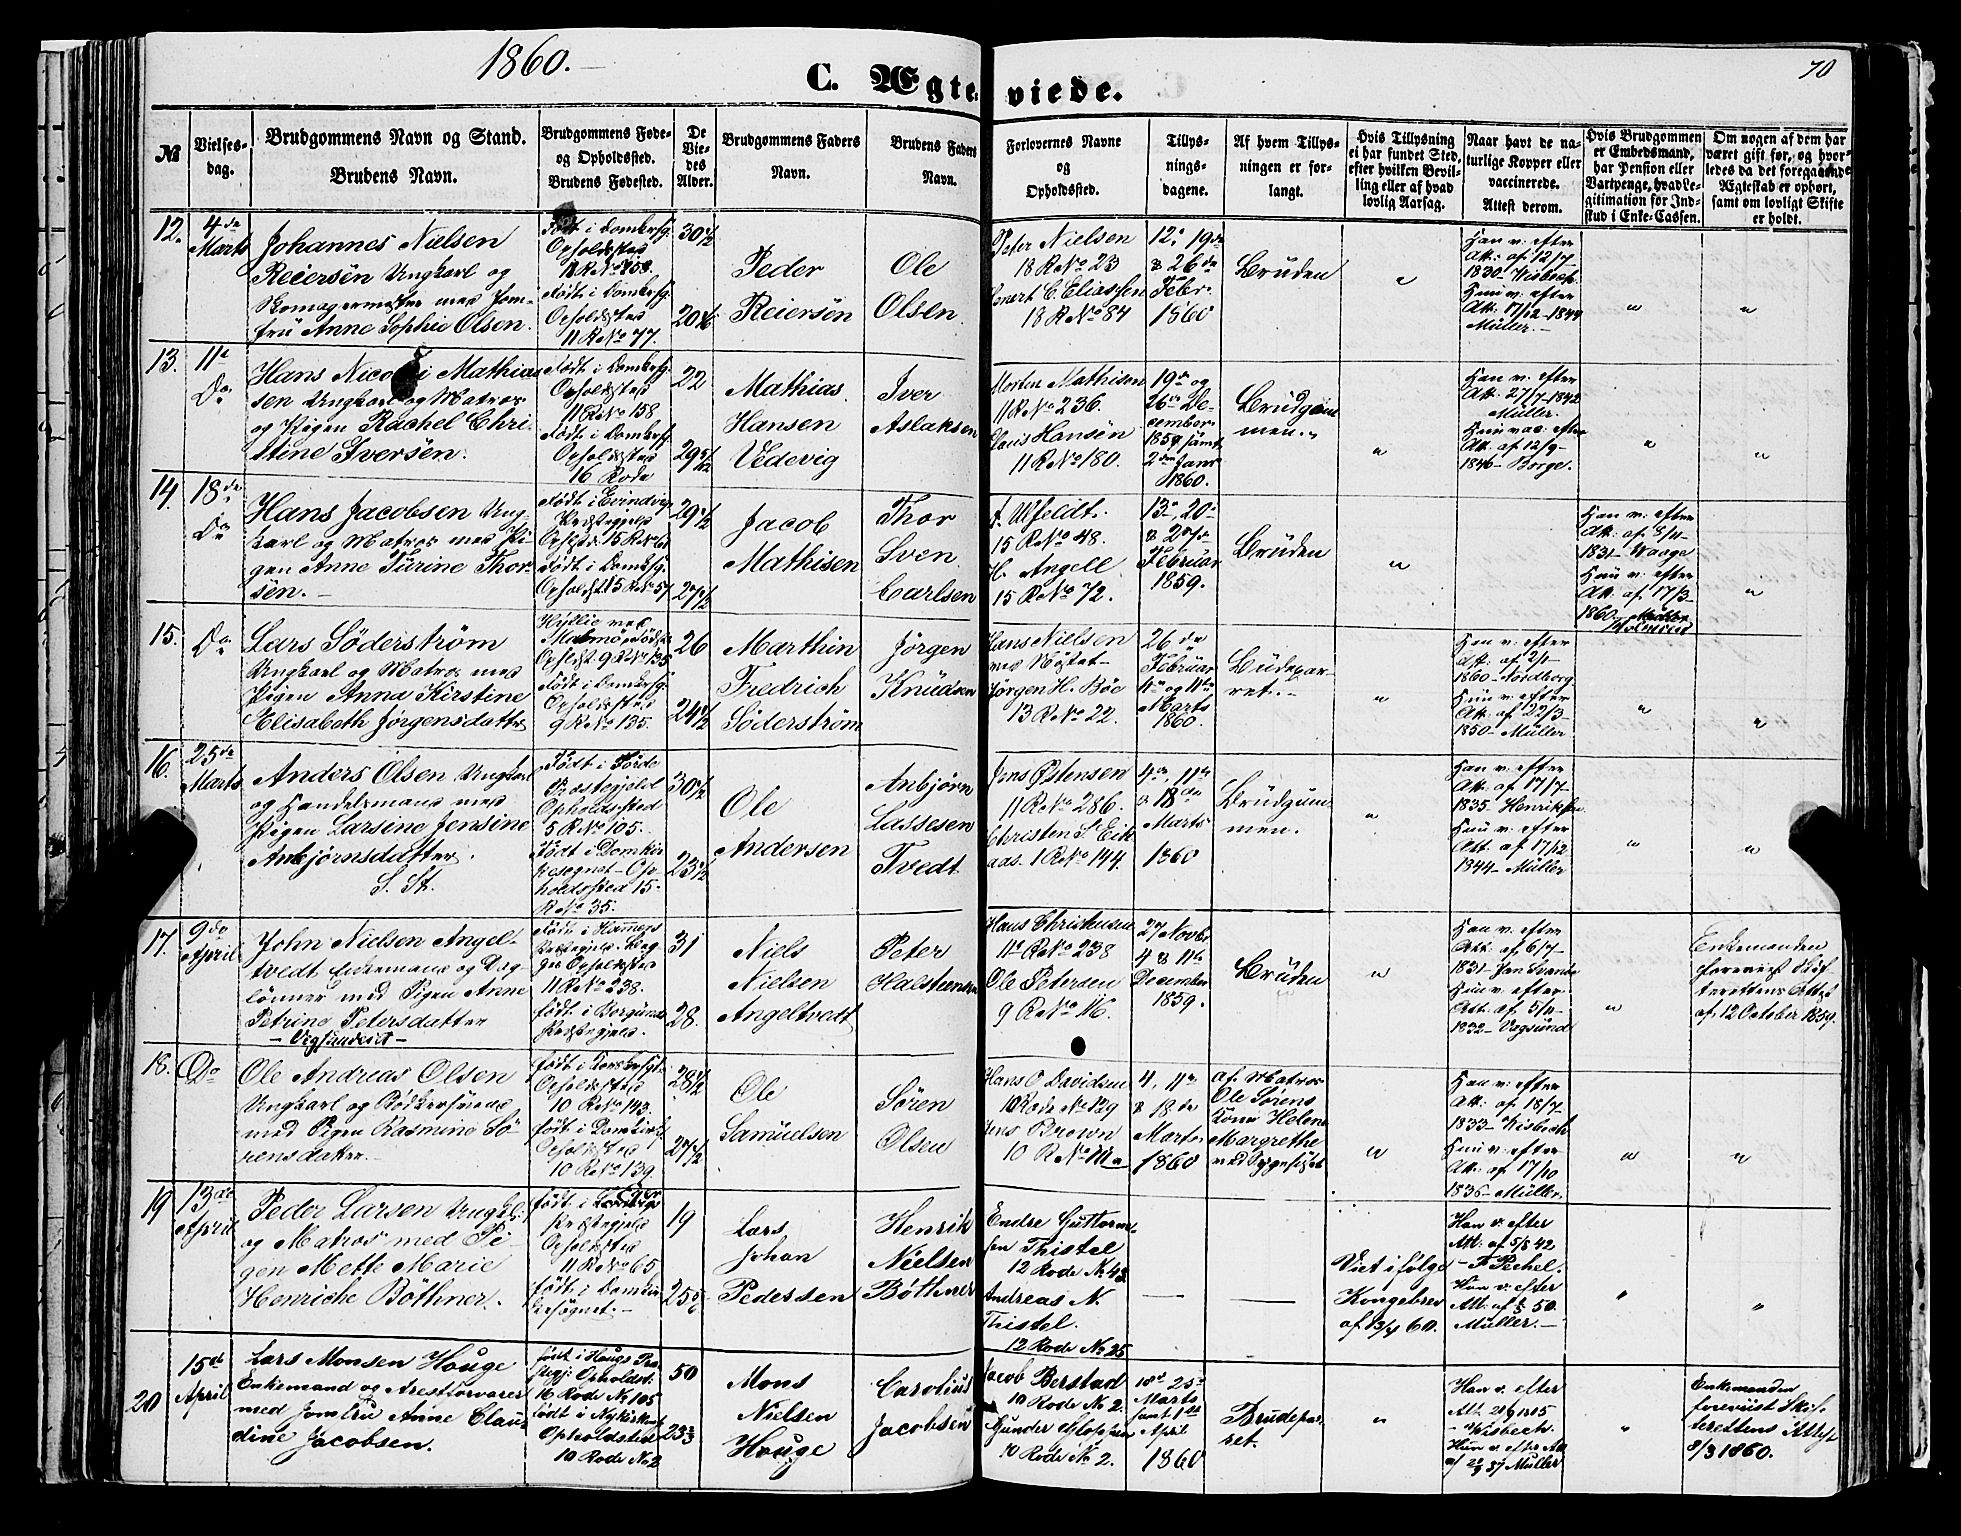 1860.
C. Ægteviede.
70
№
Vielses-
dag.
Brudgommens Navn og Stand.
Brudens Navn.
Brudgommens Føde-
og Opholdssted.
Brudens Fødested.
De
Vie-
des
Alder.
Brudgommens Faders
Navn.
Brudens Faders
Navn.
Forlovernes Navne
og
Opholdssted.
Tillys-
nings-
dagene.
Af hvem Tillys-
ningen er for-
langt.
Hvis Tillysning
ei har fundet Sted,
efter hvilken Bevil-
ling eller af hvad
lovlig Aarsag.
Naar havt de na-
turlige Kopper eller
vaccinerede.
Attest derom.
Hvis Brudgommen
er Embedsmand,
har Pension eller
Vartpenge, hvad Le-
gitimation for Ind-
skud i Enke-Cassen.
Om nogen af dem har
været gift før, og hvor-
ledes da det foregaaende
Ægteskab er ophørt,
samt om lovligt Skifte
er holdt.
12.
4de
Marts
Johannes Nielsen
Reiersen Ungkarl og
Skomagermester med Jom-
fru Anne Sophie Olsen.
Født i Domksg.
Opholdssted
Født i Domksg.
Opholdssted
11 R No 77.
30 1/2
Peder
Reiersen
Ole
Olsen
Peter Nielsen
18 R No 23
C. Eliassen
18 R No 84
12, 19de
& 26de
Febr.
1860
Bruden
"
Han v. efter
Att. af 12/7
1830 Wisbech.
Hun v. efter
Att. 17/12-1844
Müller.-
"
"
13.
11te
Do
Hans Nicolai Mathias
sen Ungkarl og Matros
og Pigen Rachel Chri
stine Iversen.
Født i Domksg.
Opholdssted
11 R No 158
Født i Domksg.
Opholdssted
16 Rode
22
Mathias
Hansen
Vedevig
Iver
Aslaksen
Morten Mathisen
11 R No 236.
Claus Hansen
11 R No 180.
19de og
26de De-
cember
1859 samt
2den Janr
1860.
Brudgom
men.
"
Han v. efter
Att. 27/7-1842
Müller.
Hun vac. efter
Att. af 12/9-
1846- Borge.
"
"
14.
18de
Do
Hans Jacobsen Ung-
karl og Matros med Pi
gen Anne Turine Thor-
sen.-
Født i Evindvig
Præstegjeld
Født i Domksg.
29 1/2
27 1/2
Jacob
Mathisen
Thor
Sven
Carlsen
F. Ulfeldt.
15 R No 48.
H. Angell
15 R No 72.
13de 20de
& 27de
Februar
1859.
Bruden
"
Han v. efter
Att. af 5/11-
1831- Waage
Hun v. efter
Att. af 17/3-
1860
"
15.
Do
Lars Söderström
Ungkarl og Matros med
Pigen Anna Kirstine
Elisabeth Jørgensdatter
Malmø Født
Opholdst 9 R No 135
Født i Domksg.
Opholdssted
9 R No 135.
26
24 1/2
Marthin
Fredrich
Söderström
Jørgen
Knudsen
Hans Nielsen
ved Nøstet-
Jørgen H. Bøe
13 R No 22.
26de
Februar
4de og 11te
Marts
1860.
Budepar-
ret.-
"
Han v. efter
Att. af 2/1-
1860- Nordborg
Hun v. efter
Att. af 22/3-
1850- Müller
"
"
16.
25de
Marts
Anders Olsen Ungkarl
og Handelsmand med
Pigen Larsine Jensine
Anbjørnsdatter.
S. St.
Født i Førde
Præstegjeld
Opholdssted
5 R No 105.
Født i Domkir
kesognet - Op-
holdssted 15-
R No 35.
30 1/2
23 1/2
Ole
Andersen
Anbjørn
Lassesen
Tvedt
Jens Østensen
11 R No 286.
Christen S. Eik
aas. 1 R No 144.
4de, 11te
& 18de
Marts
1860
Brudgum
men.
"
Han v. efter
Att. af 17/7-
1835. Henriksen
Hun v. efter
Att. af 17/12
1844- Müller
"
"
17.
9de
April
John Nielsen Angel-
tvedt Enkemand og Dag-
lønner med Pigen Anne
Petrine Petersdatter
11 R No 238.
født i Borgund
Præstegjeld.
31
28.
Niels
Nielsen
Angeltvedt
Peter
Halsteensen
Hans Christensen
11 R No 238
Ole Petersen
9 R No 16.
27 Novbr.
4 & 11te
December
1859.
Bruden
"
Han v. efter
Att. af 6/7-
Hun v. efter
Att. af 5/11-
1832- Vegsund
"
Enkemanden
foreviist Skif-
terettens Attest
af 12 October 1859.
18.
Do
Ole Andreas Olsen
Ungkarl og Bødkersvend
med Pigen Rasmine Sö-
rensdatter.-
Opholdssted
10 R No 143.
født i Domkirks
Opholdssted
10 R No 139.
28 1/2
27 1/2
Ole
Samuelsen
Sören
Olsen
Hans O Davidsen
10 Rode No 129
Jens Brown
4, 11te
& 18de
Marts
1860
af Matros
Ole Sørens
Kone Helene
Margrethe
"
Han v. efter
Att. af 18/7-
1833- Wisbech
Hun v. efter
Att. af 17/10
1836- Müller.
"
"
19
13de
April
Peder Larsen Ungkl.
og Matros med Pi-
gen Mette Marie
Henriche Böthner.
Præstegjeld
Opholdssted
11 R No 65
født i Domkir
kesognet.-
19
Lars
Johan
Pedersen
Henrik
Nielsen
Böthner
Endre Guttorm-
sen Thistel
12 Rode No 43
Andreas N.
Thistel.
12 Rode No 25
Viet ifølge
Kongebrev
af 13/4 60.
Han v. efter
Att. af 5/8 42
- F. Pechel.
Hun v. efter
Müller.-
"
"
20
15de
April
Lars Monsen Houge
Enkemand og Arestforvarer
med Jomfru Anne Clau
dine Jacobsen.
født i Hougs Præ
stegj: Opholdst.
16 Rode No 105
født i Nykirkens
Opholdssted
10 Rode No 2
50
Mons
Nielsen
Houge
Carolius
Jacobsen
Jacob Berstad
10 Rode No 2.
10 Rode No 2.
18de 25de
Marts
samt 1ste
April
1860
Brudepar-
ret.
"
Han v. efter
- Wisbech.
Hun v. efter Att
"
Enkemanden
foreviist Skif-
terettens Attest
8/3 1860.